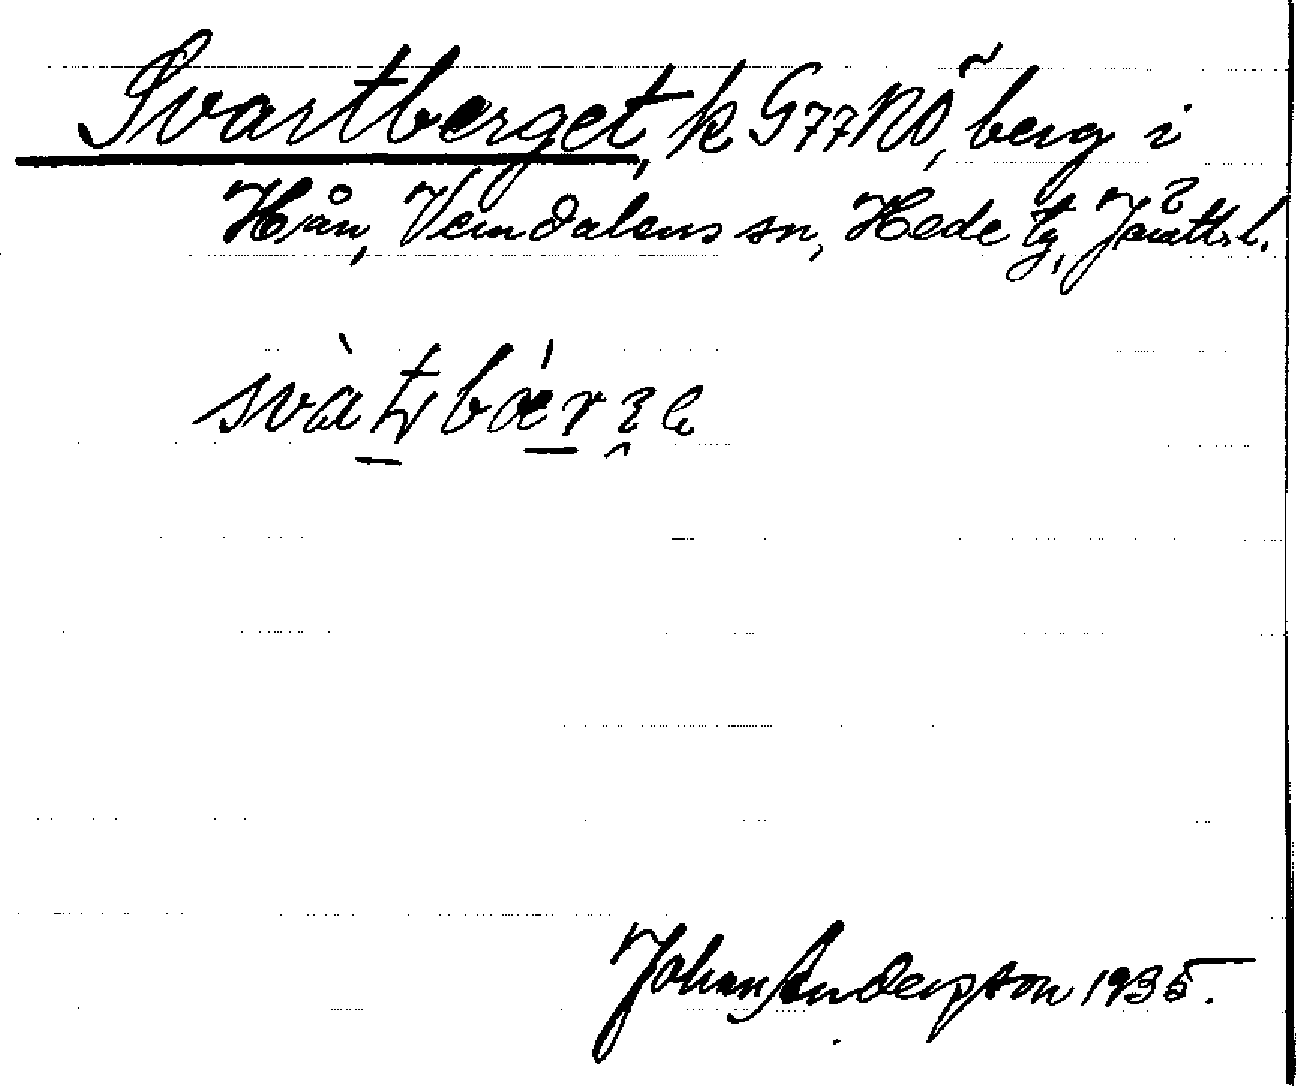 Svartberget, k G77NÖ, berg i
Hån, Vemdalens sn, Hede tg, Jämtl. l.
Johan Anderson 1935.